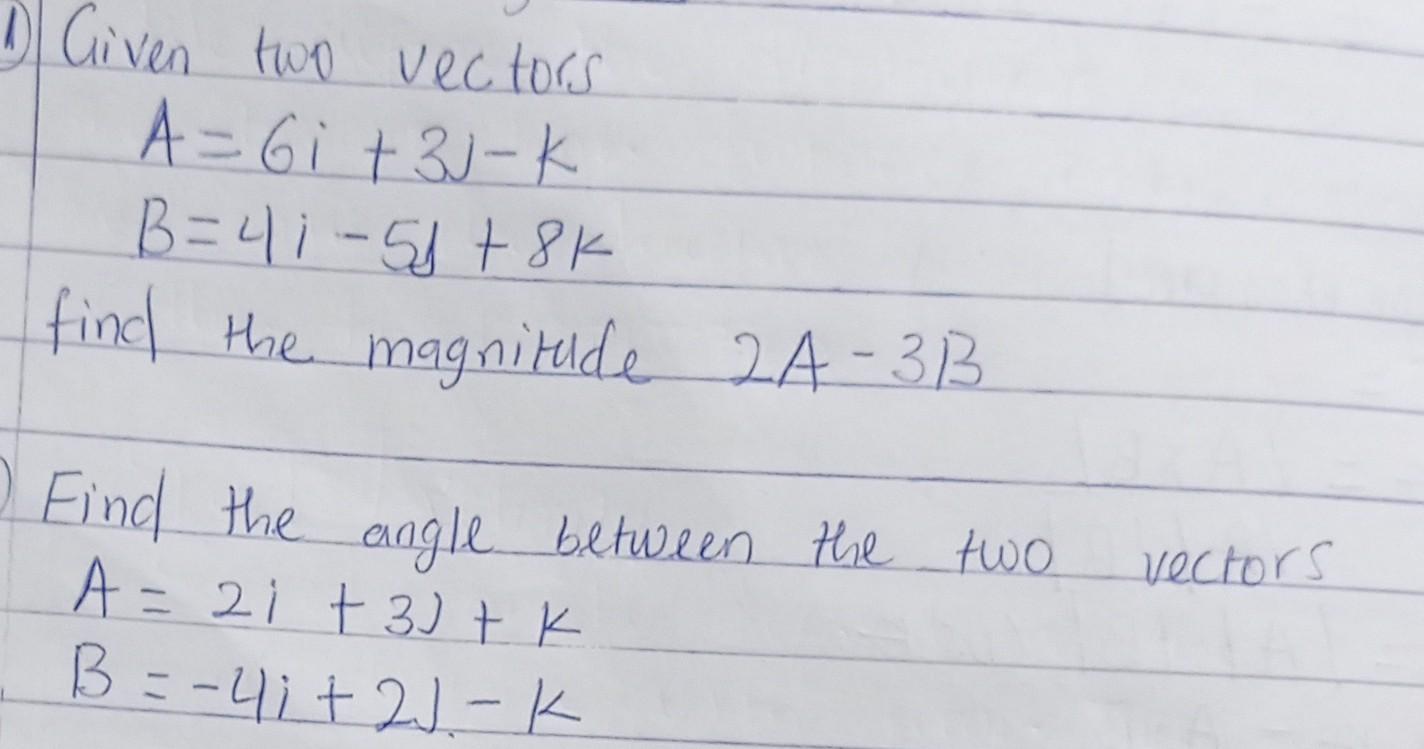 1) Given two vectors
A = 6i + 3j - k
B = 4i - 5j + 8k
find the magnitude 2A - 3B
) Find the angle between the two vectors
A = 2i + 3j + k
B = -4i + 2j - k